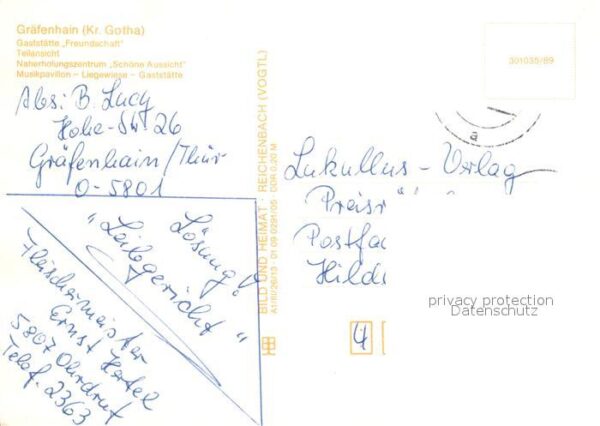 Gräfenhain (Kr. Gotha)
Gaststätte „Freundschaft"
Teilansicht
Naherholungszentrum „Schöne Aussicht"
Musikpavillon – Liegewiese – Gaststätte
Abs: B. Lucy
Hohe-Str. 26
Gräfenhain/Thür.
O-5801
Lösung:
"Leibgericht"
Fleischermeister
Ernst Hertel
5807 Ohrdruf
Telef. 2363
BILD UND HEIMAT · REICHENBACH (VOGTL)
A1/III/26/13 · 01 09 0291/05 · DDR 0,20 M
301035/89
a
Lukullus-Verlag
Preisr
Postfac
Hilde
4
privacy protection
Datenschutz